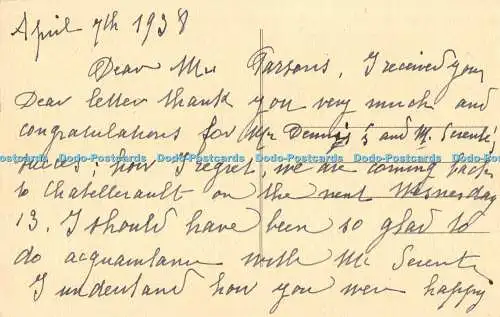 April 7th 1938
Dear Mrs Parsons, I received your
Dear letter thank you very much and
congratulations for Mr Dennis's and M. Serent's
succes; how I regret, we are coming back
to Chatellerault on the next Wesnesday
13. I should have been so glad to
do acquaintance with M. Serent.
I understand how you were happy
Dodo-Postcards Dodo-Postcards Dodo-Postcards Dodo-Postcards Dodo-Postcards Dodo-Postcards